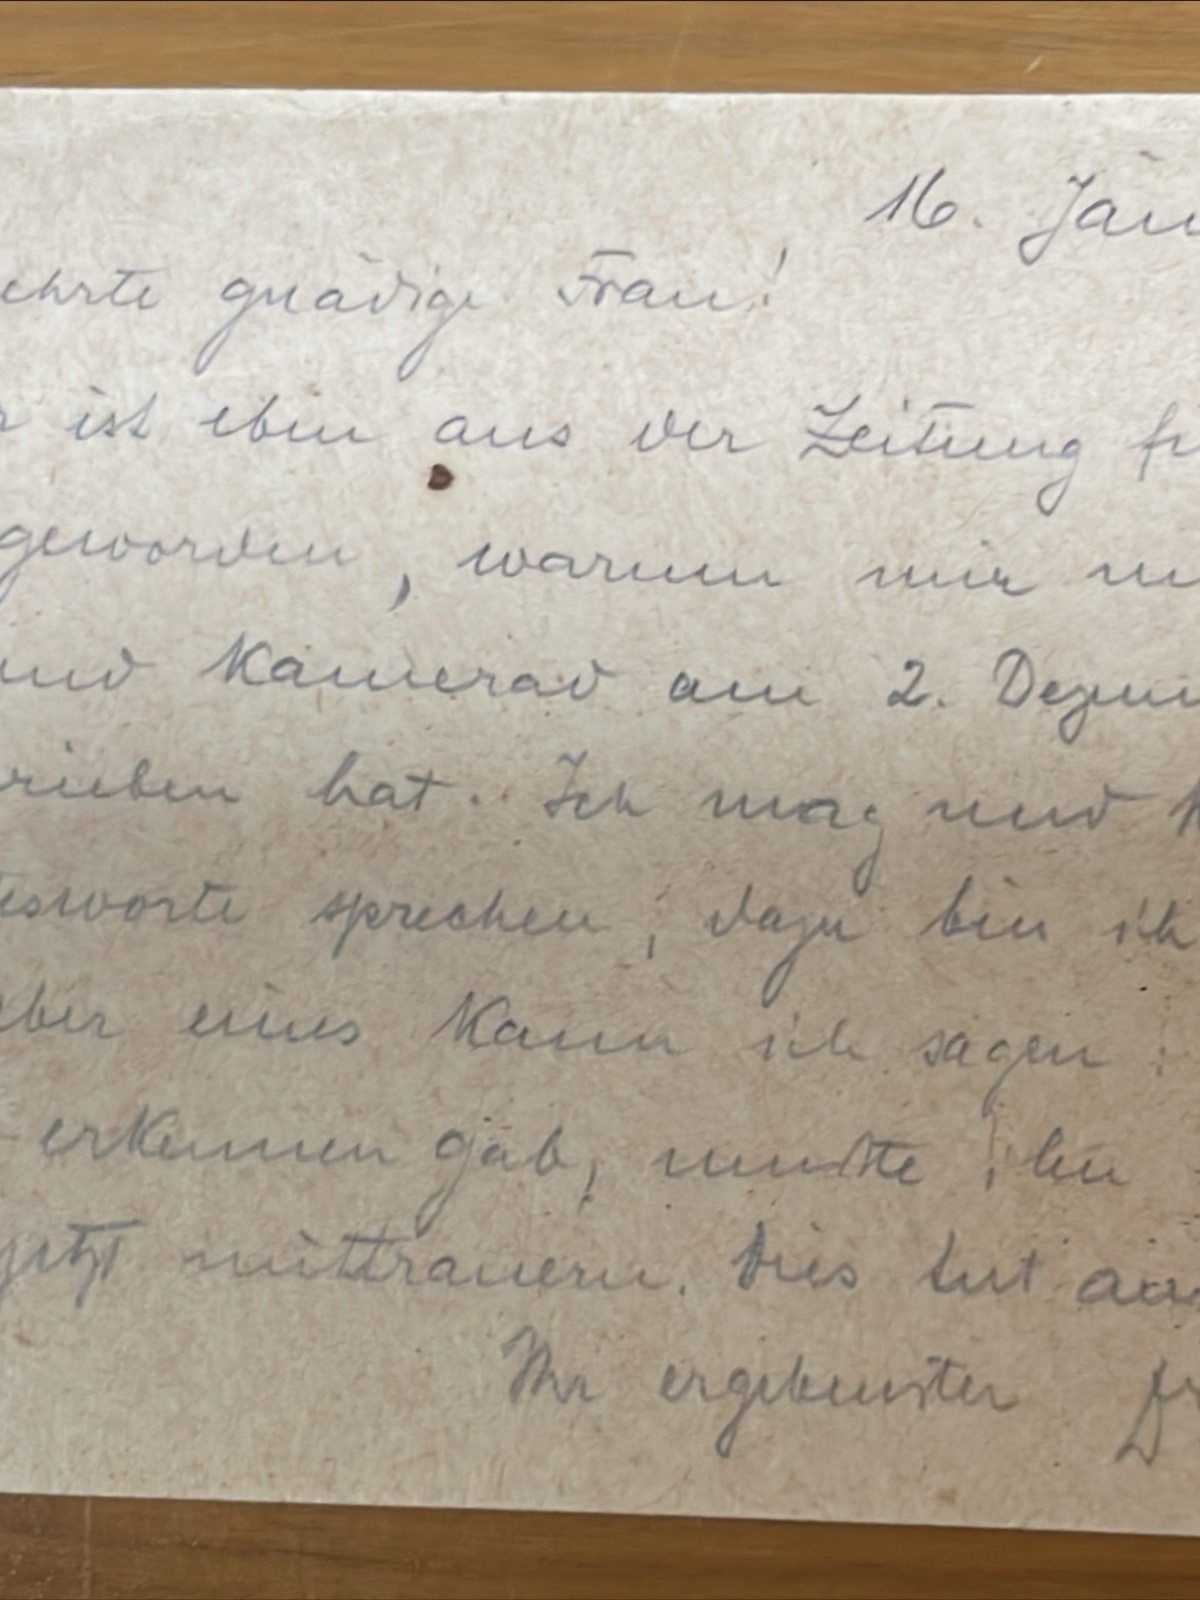 16. Jän
ehrte gnädige Frau!
r ist eben aus der Zeitung
geworden, warum mir
und Kamerad am 2. Dezem
rieben hat. Ich mag und k
tesworte sprechen, dazu bin ich
eber eines kann ich sagen:
erkennen gab, musste ihn
jetzt mittrauern. Dies tut
Ihr ergebenster